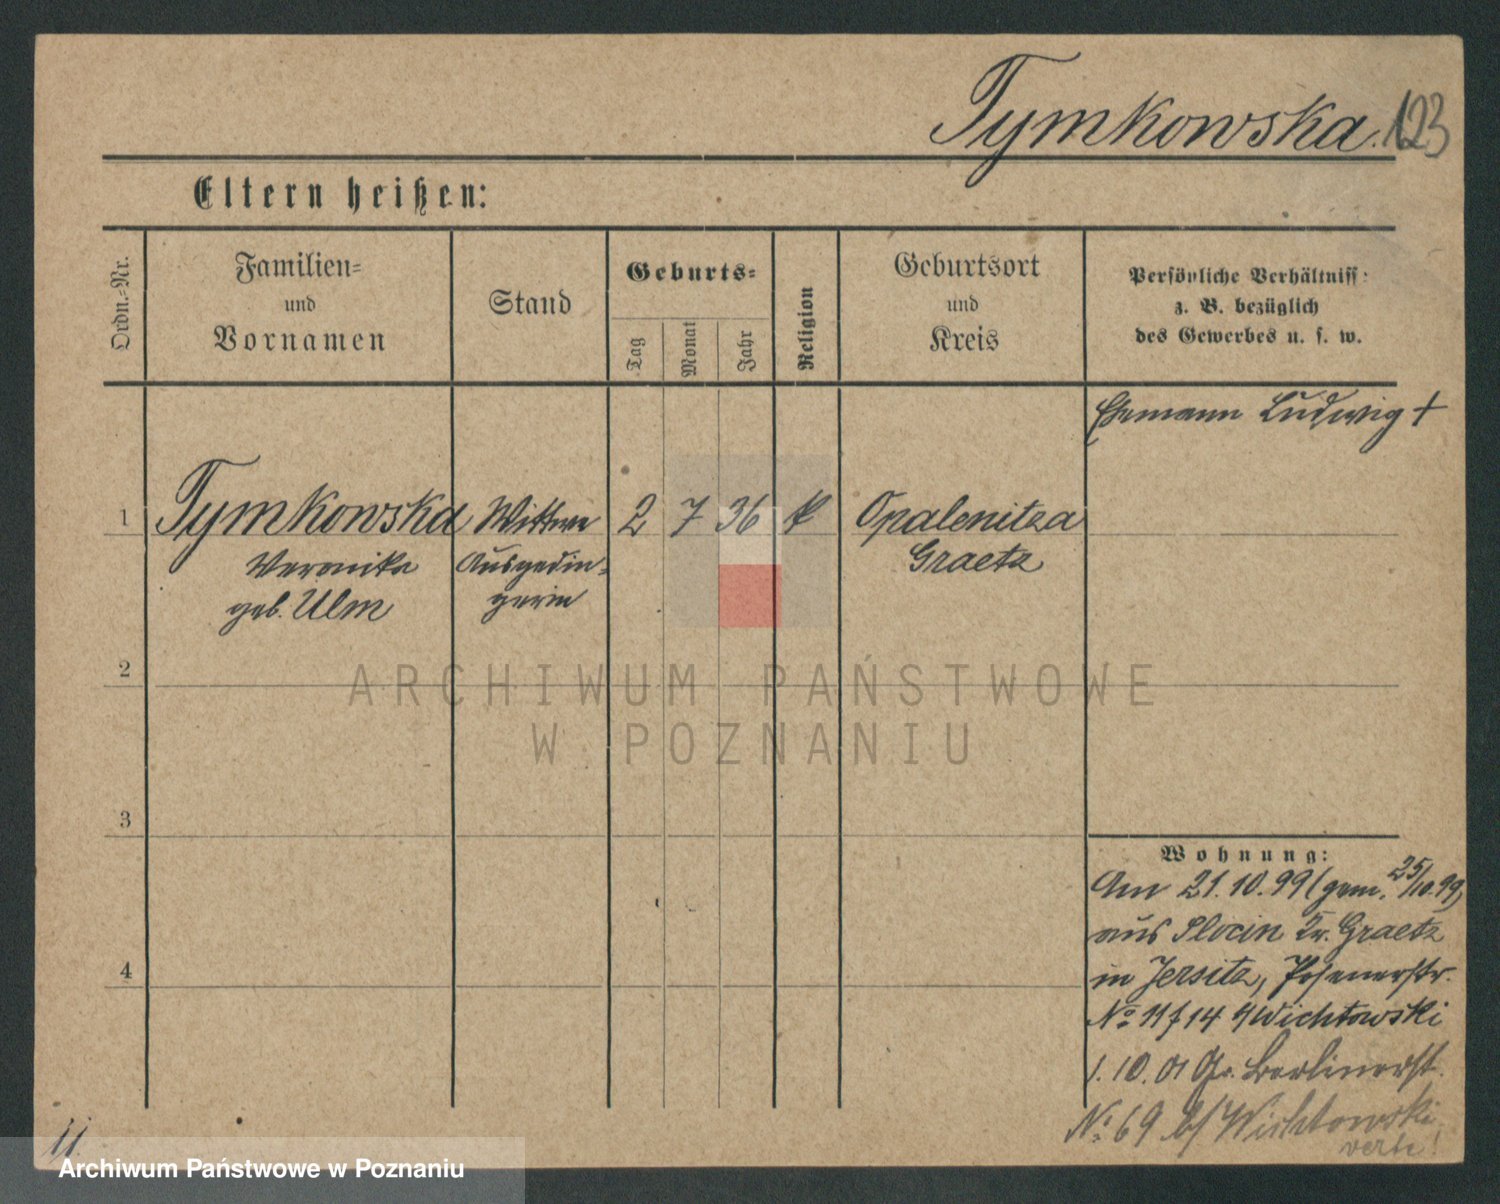 Tymkowska. 123
Eltern heißen:
Ordn.-Nr.
Familien-
und
Vornamen
Stand
Geburts-
Tag
Monat
Jahr
Religion
Geburtsort
und
Kreis
Persönliche Verhältniss
z. B. bezüglich
des Gewerbes u. s. w.
Ehemann Ludwig +
1 Tymkowska Wittwe 2 7 36 k Opalenitza
Veronika Ausgedin- Graetz
geb. Ulm gerin
2
3
4
Wohnung:
Am 21.10.99 (gem. 25/10.99)
aus Slocin Kr. Graetz
in Jersitz, Posenerstr.
No 11/14 Wichtowski
1.10.01 Gr. Berlinerst.
No 69 b/ Wichtowski
verte!
ARCHIWUM PAŃSTWOWE
W POZNANIU
Archiwum Państwowe w Poznaniu